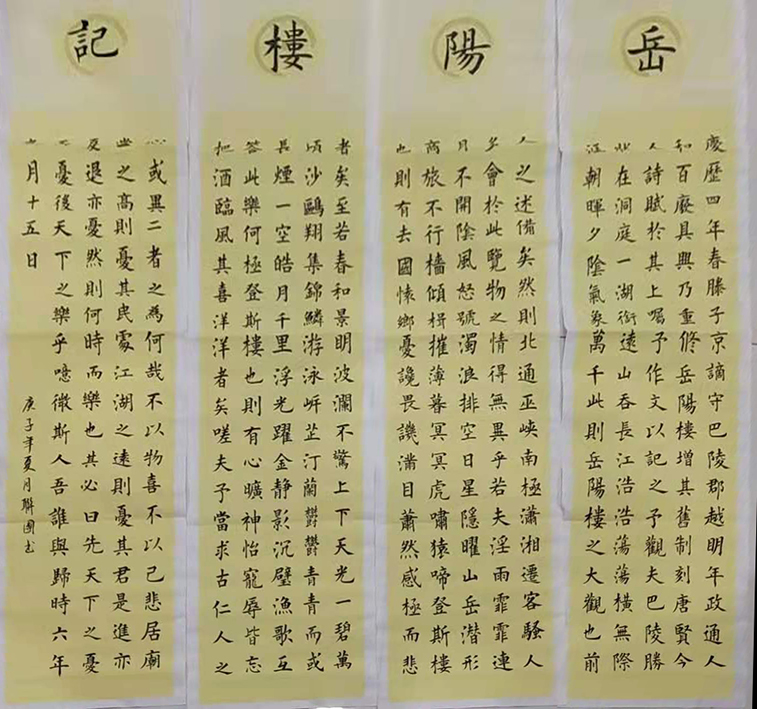 岳
慶歷四年春滕子京謫守巴陵郡越明年政通人
和百廢具興乃重脩岳陽樓增其舊制刻唐賢今
人詩賦於其上囑予作文以記之予觀夫巴陵勝
狀在洞庭一湖銜遠山吞長江浩浩蕩蕩橫無際
涯朝暉夕陰氣象萬千此則岳陽樓之大觀也前
陽
人之述備矣然則北通巫峽南極瀟湘遷客騷人
多會於此覽物之情得無異乎若夫淫雨霏霏連
月不開陰風怒號濁浪排空日星隱曜山岳潛形
商旅不行檣傾楫摧薄暮冥冥虎嘯猿啼登斯樓
也則有去國懷鄉憂讒畏譏滿目蕭然感極而悲
樓
者矣至若春和景明波瀾不驚上下天光一碧萬
頃沙鷗翔集錦鱗游泳岸芷汀蘭鬱鬱青青而或
長煙一空皓月千里浮光躍金静影沉璧漁歌互
答此樂何極登斯樓也則有心曠神怡寵辱皆忘
把酒臨風其喜洋洋者矣嗟夫予當求古仁人之
記
心或異二者之為何哉不以物喜不以己悲居廟
之高則憂其民處江湖之遠則憂其君是進亦
退亦憂然則何時而樂也其必曰先天下之憂
憂後天下之樂乎噫微斯人吾誰與歸時六年
月十五日
庚子年夏月聯國书